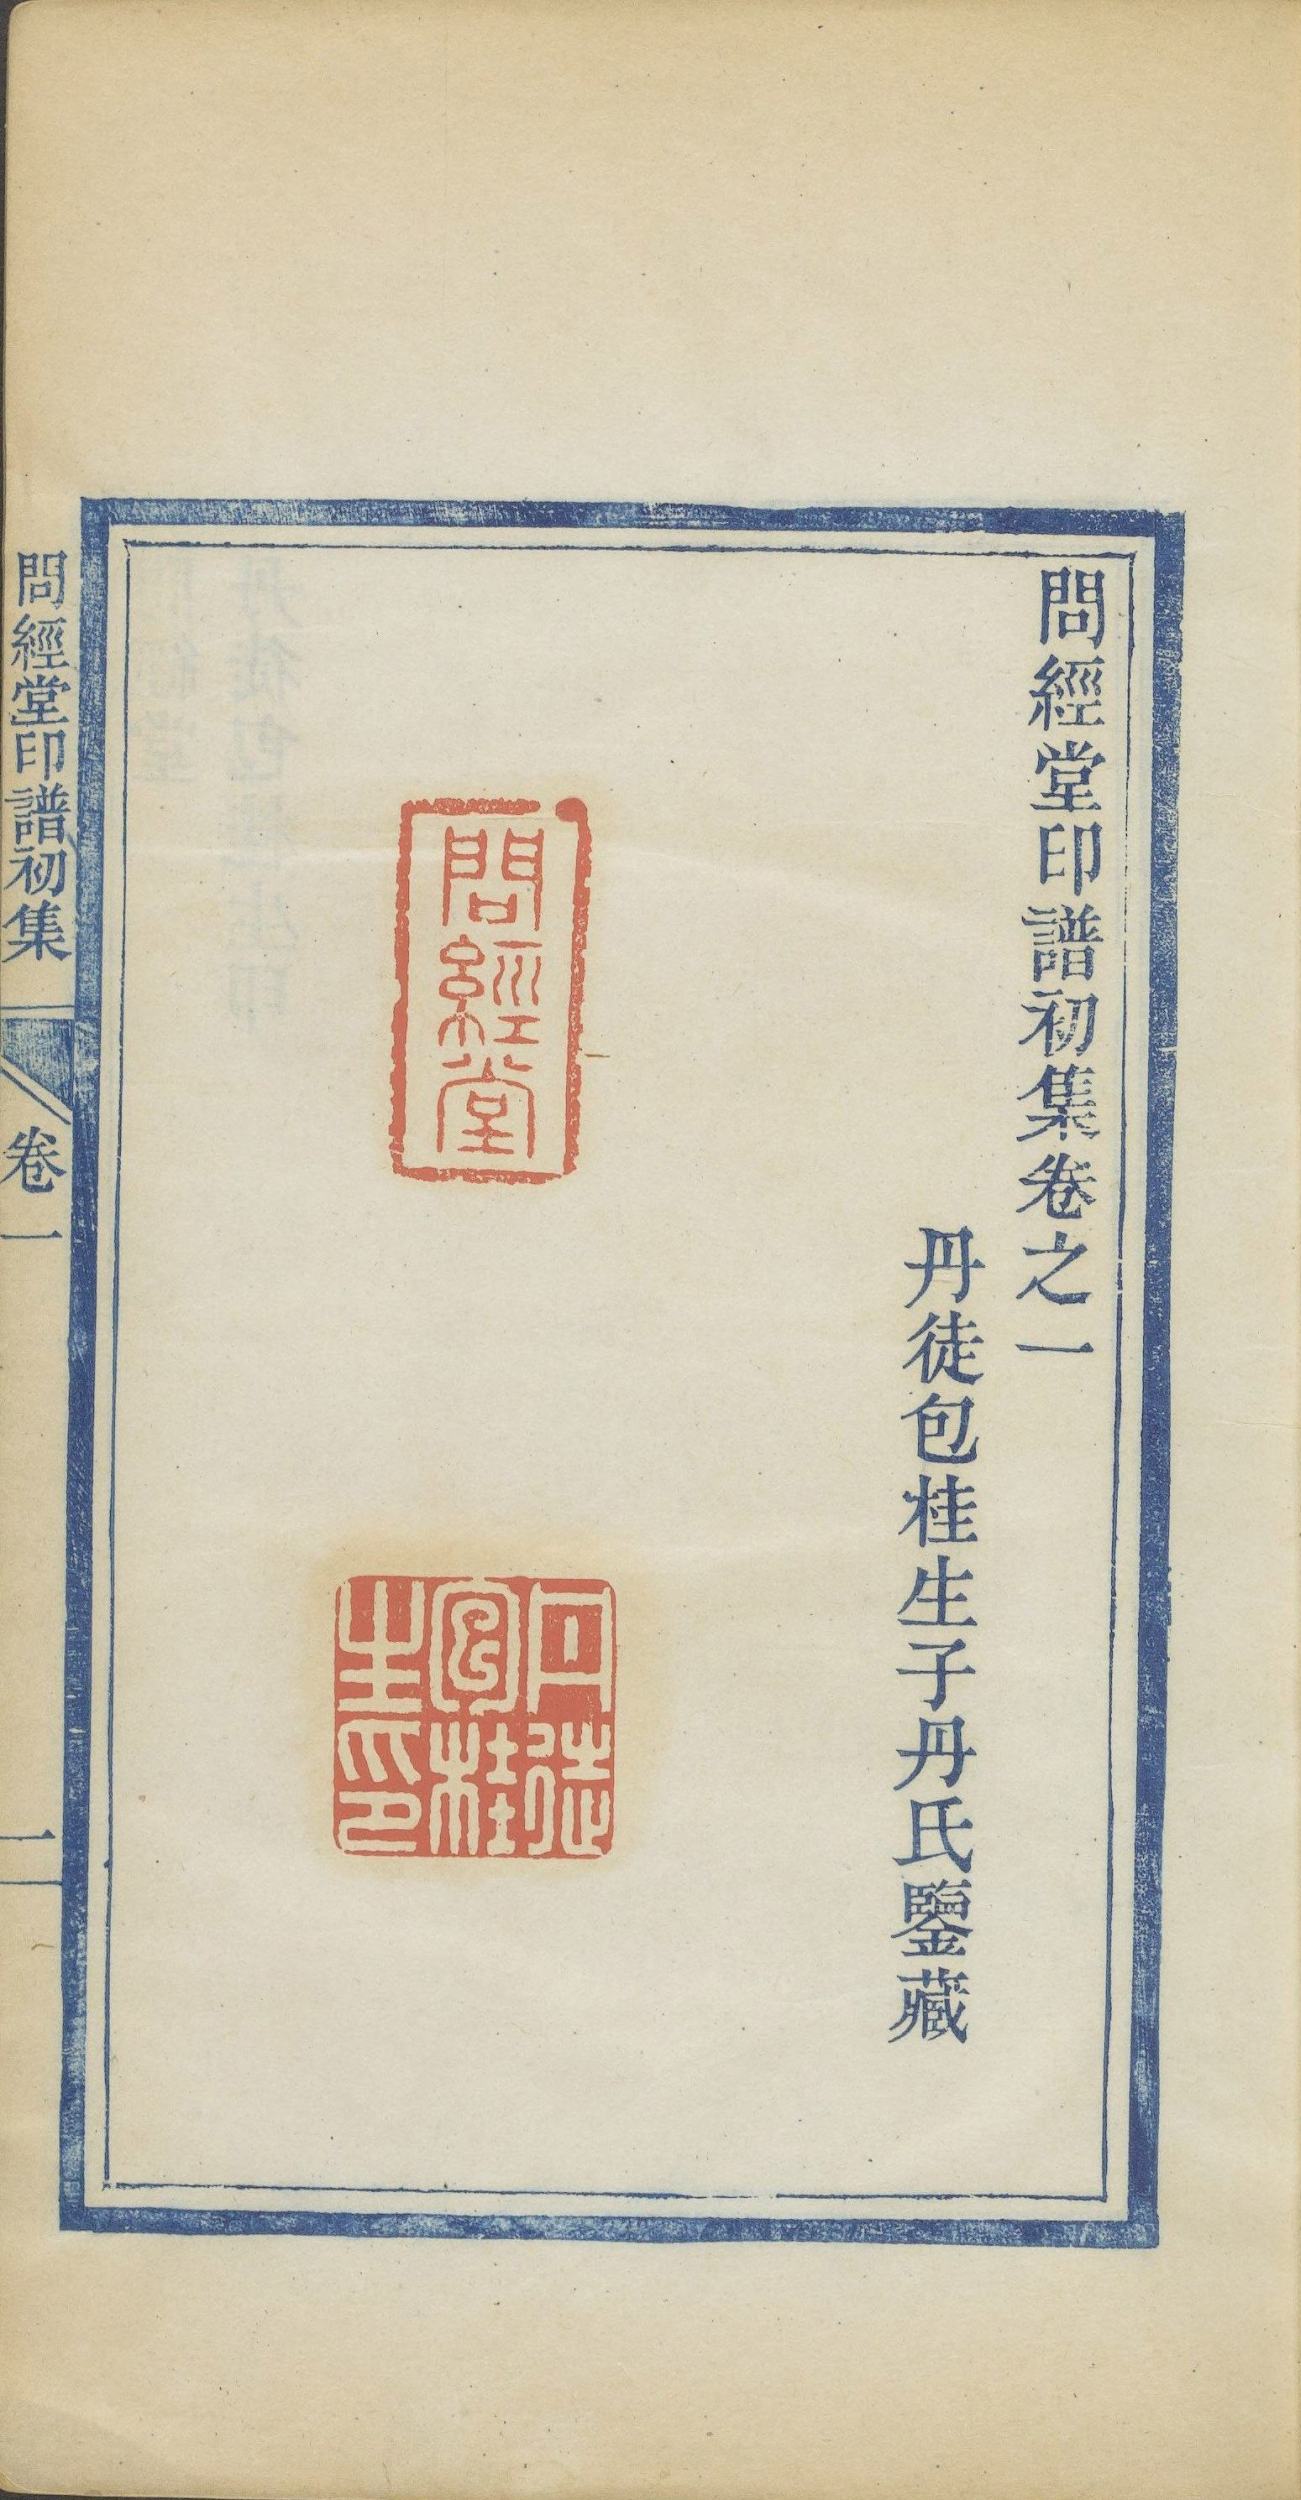 問經堂印譜初集卷之一
丹徒包桂生子丹氏鑒藏
問經堂
丹徒
包桂
生印
問經堂印譜初集
卷一
一